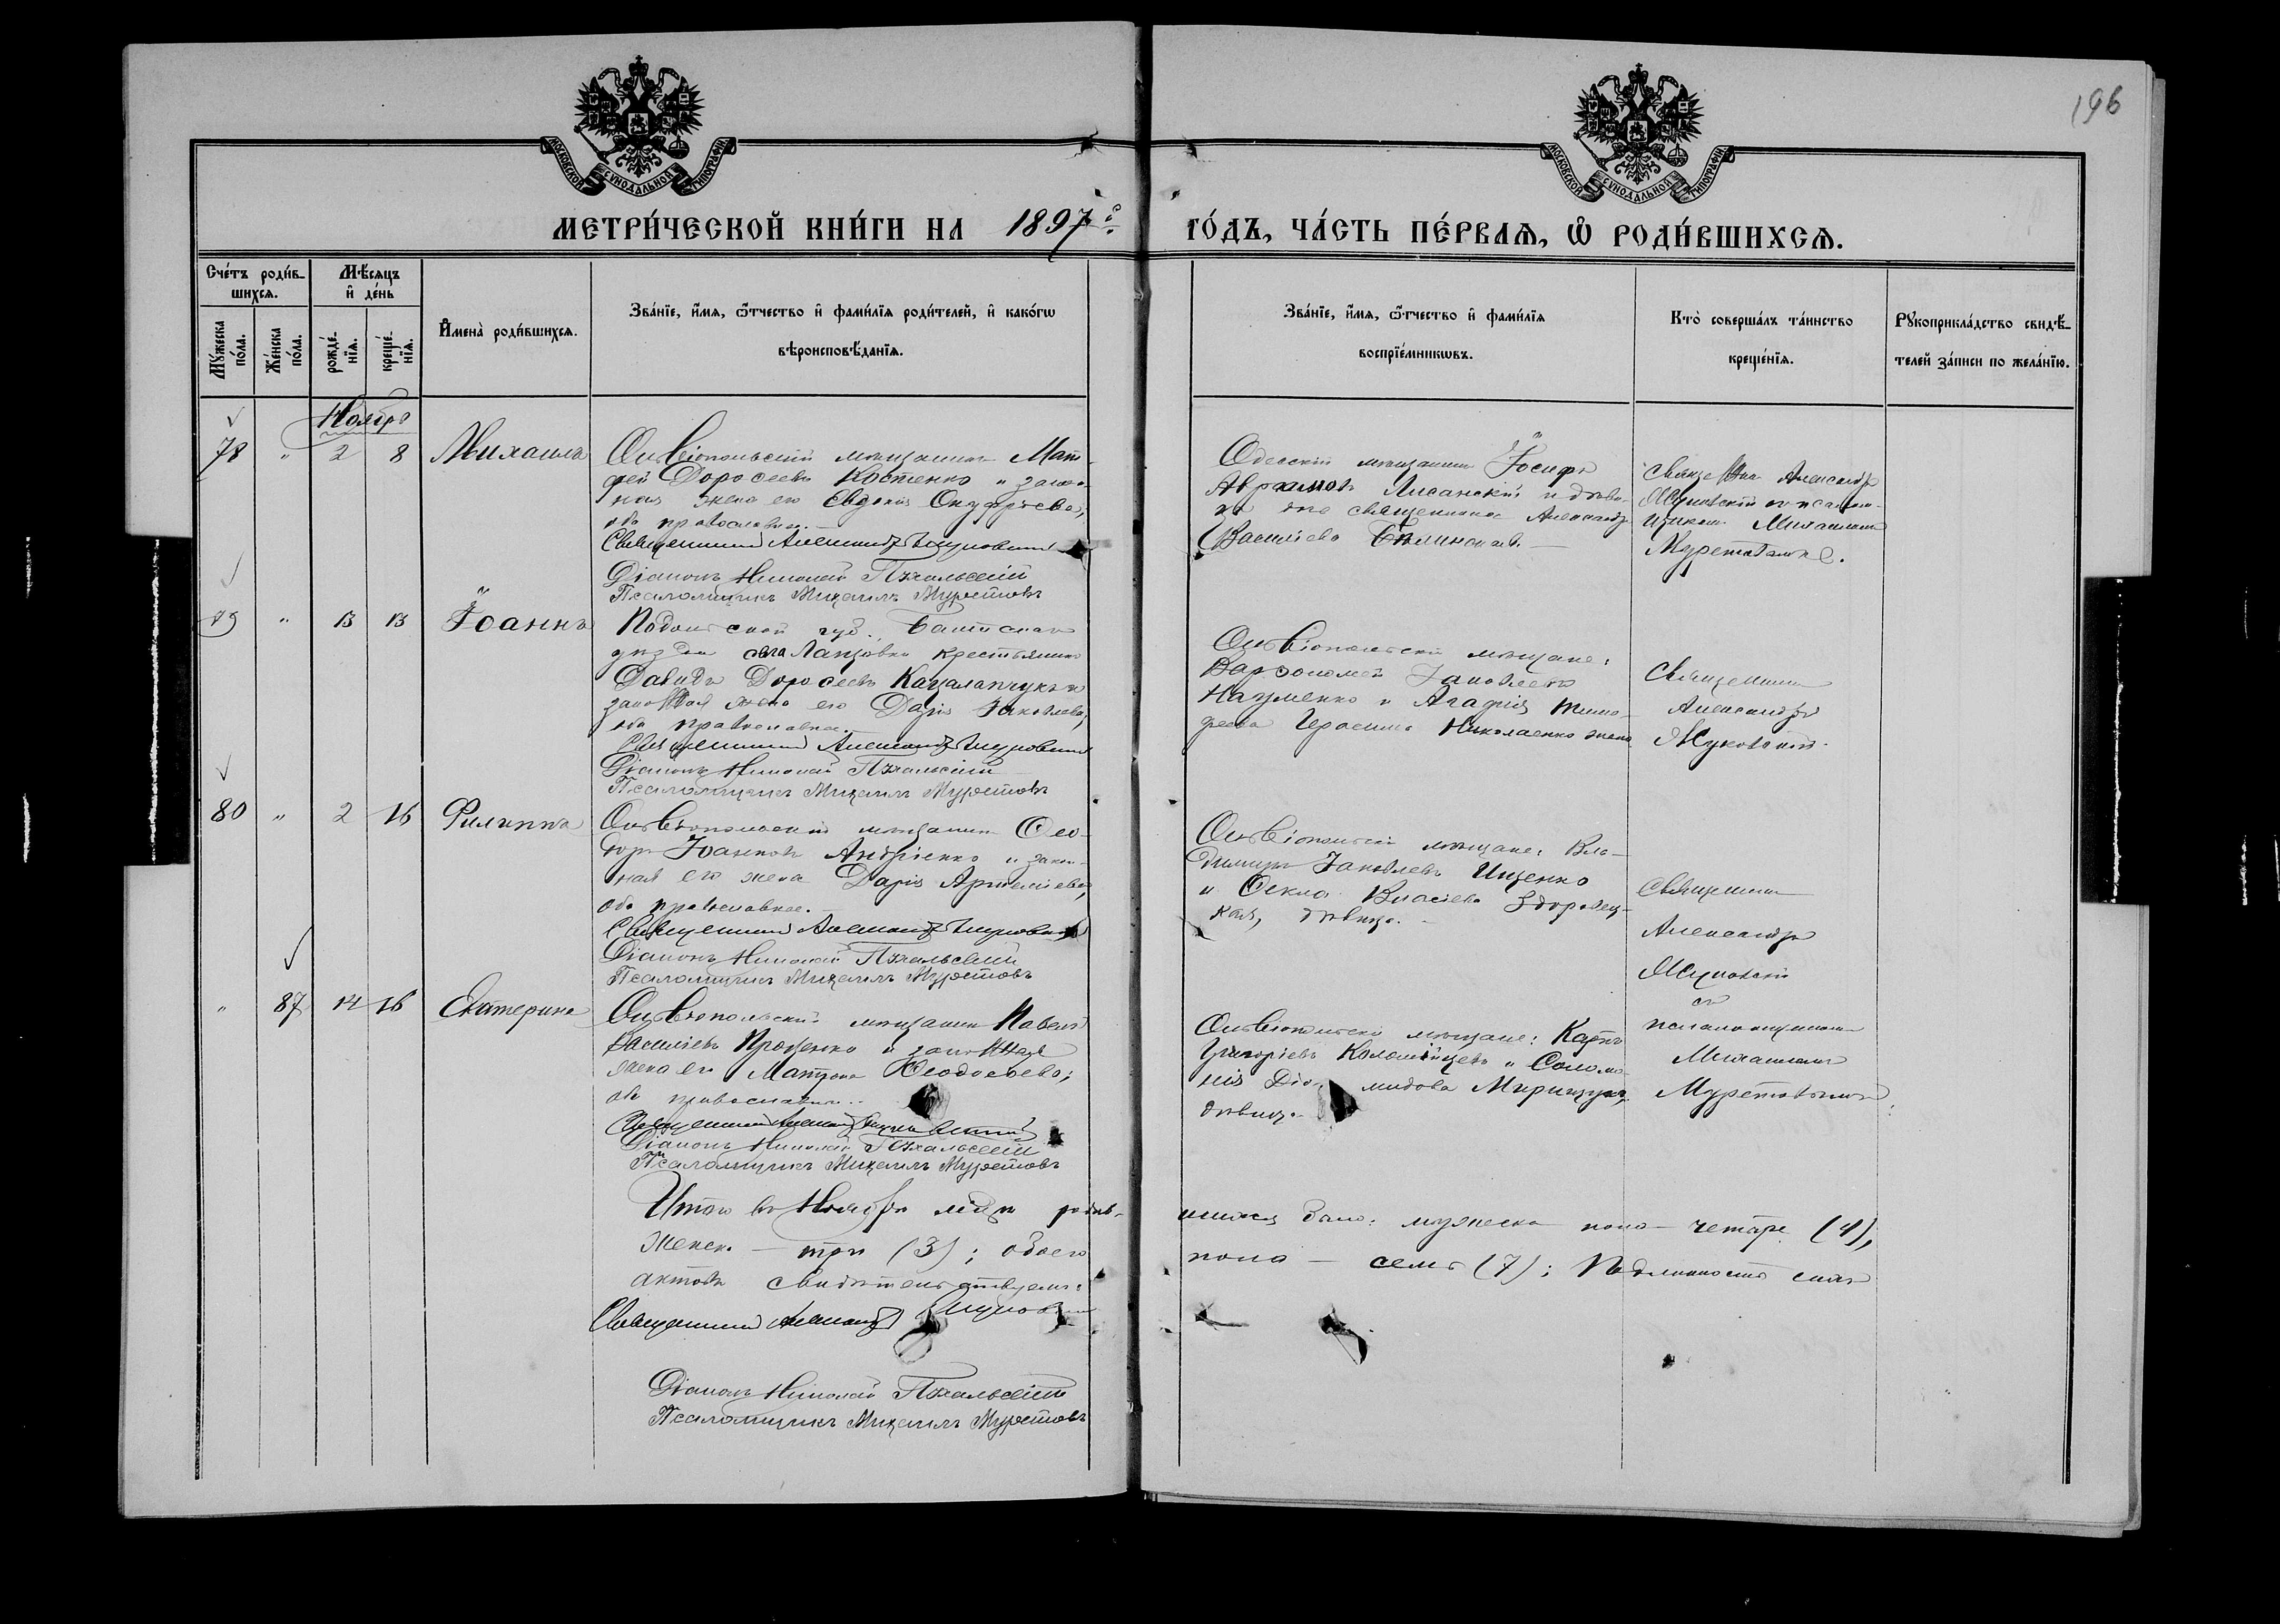 196
МОСКОВСКОЙ СУНОДАЛЬНОЙ ТИПОГРАФІИ
МОСКОВСКОЙ СУНОДАЛЬНОЙ ТИПОГРАФІИ
МЕТРИ́ЧЕСКОЙ КНИ́ГИ НА 1897 г.
ГО́ДЪ, ЧА́СТЬ ПЕ́РВАѦ, Ѽ РОДИ́ВШИХСѦ.
Сче́тъ роди́в-
шихсѧ.
Мꙋ́жеска по́ла.
Же́нска по́ла.
Мѣ́сѧцъ
и҆ де́нь
рожде́-
нїѧ.
креще́-
нїѧ.
И҆мена̀ роди́вшихсѧ.
Зва́нїе, и҆́мѧ, ѻ҆́тчество и҆ фами́лїѧ роди́телей, и҆ како́гѡ
вѣроисповѣ́данїѧ.
Зва́нїе, и҆́мѧ, ѻ҆́тчество и҆ фами́лїѧ
воспрїе́мникѡвъ.
Кто̀ соверша́лъ та́инство
креще́нїѧ.
Рꙋкоприкла́дство свидѣ́-
телей за́писи по жела́нїю.
Ноябрь
78 " 2 8 Михаилъ
Ольвіопольскій мѣщанинъ Мат-
фей Доросеевъ Костенко и закон-
ная жена его Евдокія Онуфріева,
оба православные.
Священникъ Александръ Жуковскій
Діаконъ Николай
Псаломщикъ Михаилъ Муретовъ
Одесскій мѣщанинъ Іосифъ
Аврамовъ Лисанскій и дѣви-
ца дочь священника Александра
Васильева Бѣлинская.
Священникъ Александръ
Жуковскій съ псалом-
щикомъ Михаиломъ
Муретовымъ.
79 " 13 13 Іоаннъ
Подольской губ. Балтскаго
уѣзда села Лапшовки крестьянинъ
Давидъ Доросеевъ Кацалапчукъ и
законная жена его Дарія Яковлева,
оба православные.
Священникъ Александръ Жуковскій
Діаконъ Николай
Псаломщикъ Михаилъ Муретовъ
Ольвіопольскіе мѣщане:
Варѳоломей Іаковлевъ
Науменко и Агафія Тимо-
феева Герасима Николаенко жена
Священникъ
Александръ
Жуковскій.
80 " 2 16 Филиппъ
Ольвіопольскій мѣщанинъ Ѳео-
доръ Іоанновъ Андріенко и закон-
ная его жена Дарія Артеміева,
оба православные.
Священникъ Александръ Жуковскій
Діаконъ Николай
Псаломщикъ Михаилъ Муретовъ
Ольвіопольскіе мѣщане: Вла-
димиръ Іаковлевъ Ищенко
и Ѳекла Власіева Здоровец-
кая, дѣвица.
Священникъ
Александръ
Жуковскій
съ
псаломщикомъ
Михаиломъ
Муретовымъ
" 87 14 16 Екатерина
Ольвіопольскій мѣщанинъ Павелъ
Василіевъ Проценко и законная
жена его Матрона Ѳеодосіева;
оба православные.
Священникъ Александръ Жуковскій
Діаконъ Николай
Псаломщикъ Михаилъ Муретовъ
Ольвіопольскіе мѣщане: Карпъ
Григоріевъ Коломійцевъ и Соломо-
нія Діомидова
дѣвица.
Итого въ Ноябрѣ мѣсяцѣ родив-
шихся было: мужеска пола — четыре (4),
женск. — три (3); обоего
пола — семь (7); Подлинность сихъ
актовъ свидѣтельствуемъ:
Священникъ Александръ Жуковскій
Діаконъ Николай
Псаломщикъ Михаилъ Муретовъ